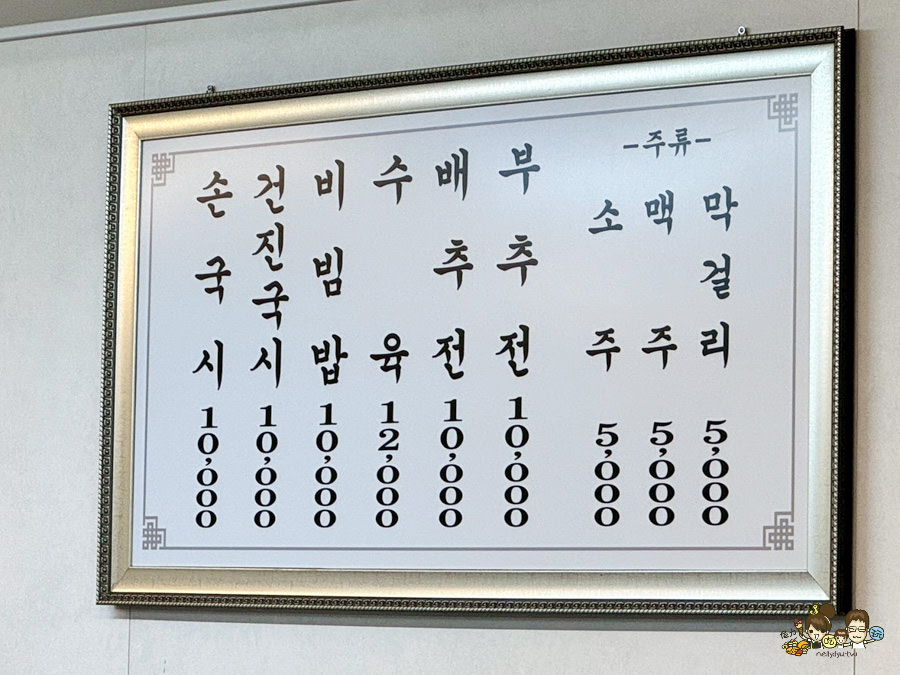 손국시 10,000
건진국시 10,000
비빔밥 10,000
수육 12,000
배추전 10,000
부추전 10,000
-주류-
소주 5,000
맥주 5,000
막걸리 5,000